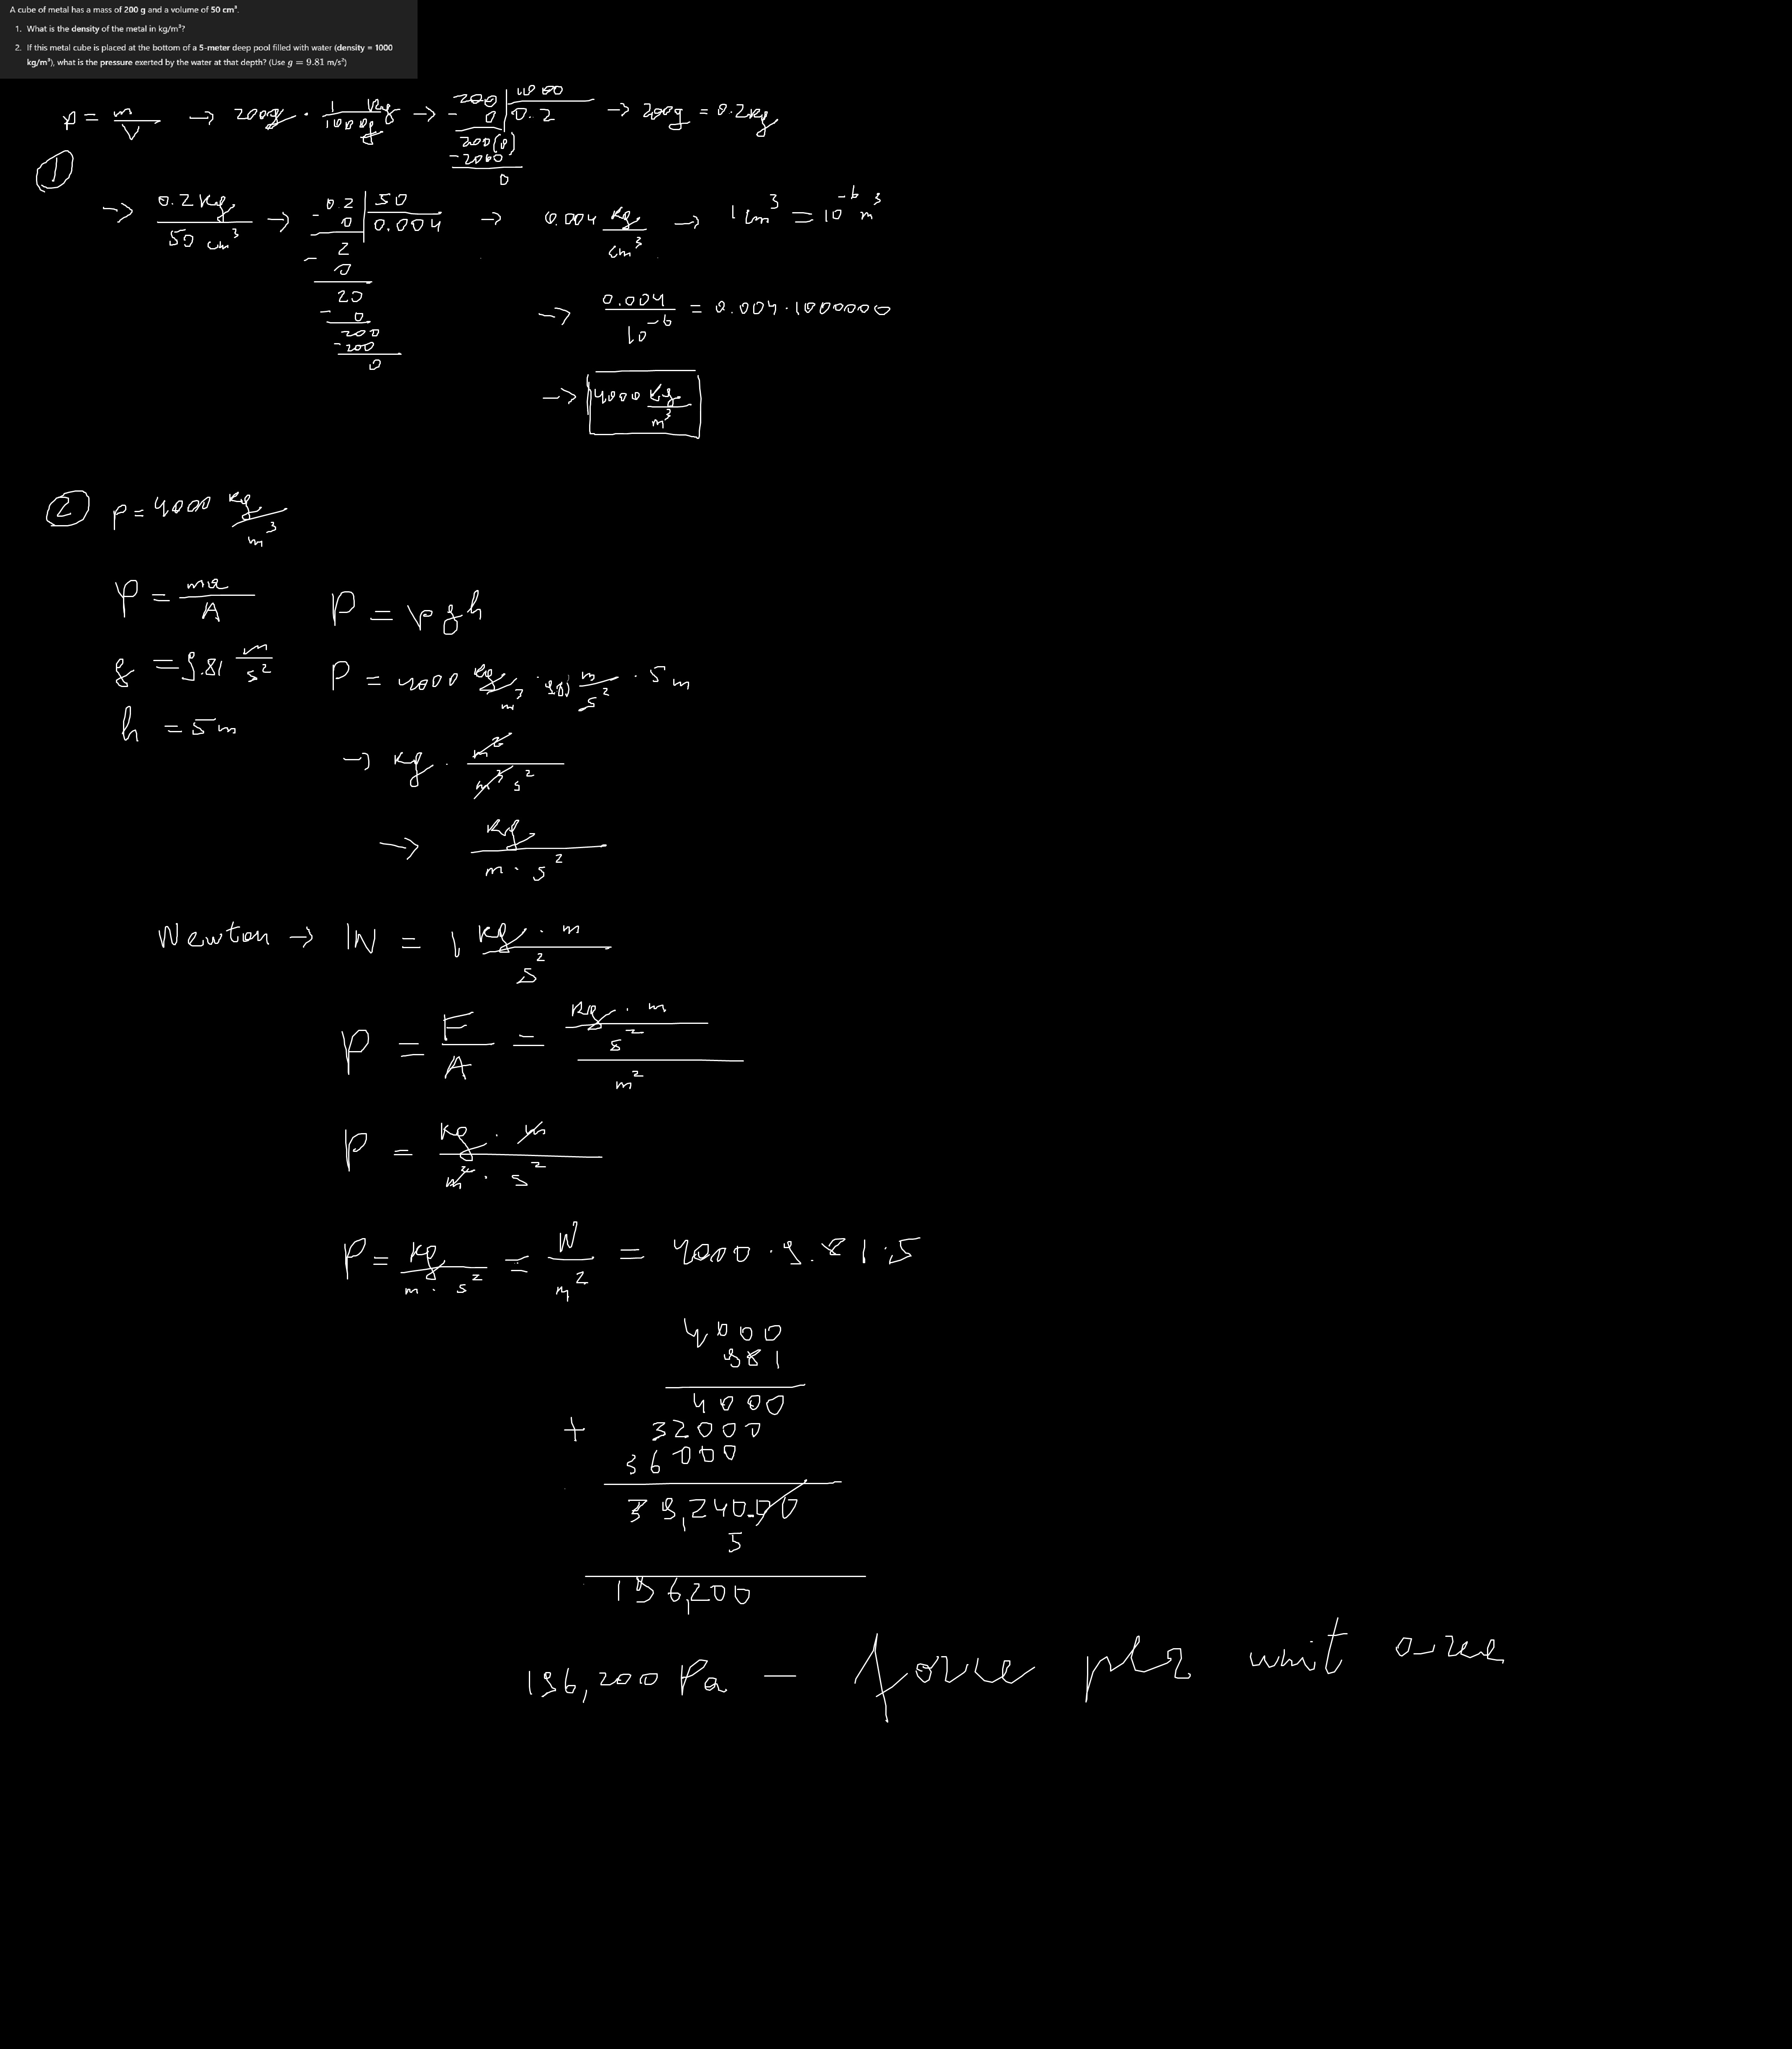 A cube of metal has a mass of 200 g and a volume of 50 cm³.
1. What is the density of the metal in kg/m³?
2. If this metal cube is placed at the bottom of a 5-meter deep pool filled with water (density = 1000
kg/m³), what is the pressure exerted by the water at that depth? (Use g = 9.81 m/s²)
① p = m/V → 200g · 1 Kg/1000g → 200 | 1000
- 0 | 0.2 → 200g = 0.2kg
200(0)
-2000
0
→ 0.2 Kg/50 cm³ → 0.2 | 50
- 0 | 0.004 → 0.004 Kg/cm³ → 1 cm³ = 10⁻⁶ m³
2
- 0
20
- 0
200
-200
0
→ 0.004/10⁻⁶ = 0.004 · 1000000
→ 4000 Kg/m³
② p = 4000 Kg/m³
P = ma/A
P = pgh
g = 9.81 m/s²
P = 4000 Kg/m³ · 9.81 m/s² · 5 m
h = 5 m
→ Kg · m²/m³ s²
→ Kg/m · s²
Newton → 1N = 1 Kg · m/s²
P = F/A = Kg · m/s² / m²
P = Kg · m/m² · s²
P = Kg/m · s² = N/m² = 4000 · 9.81 · 5
4000
981
4000
+ 32000
36000
39,240.00
5
196,200
196,200 Pa — force per unit area